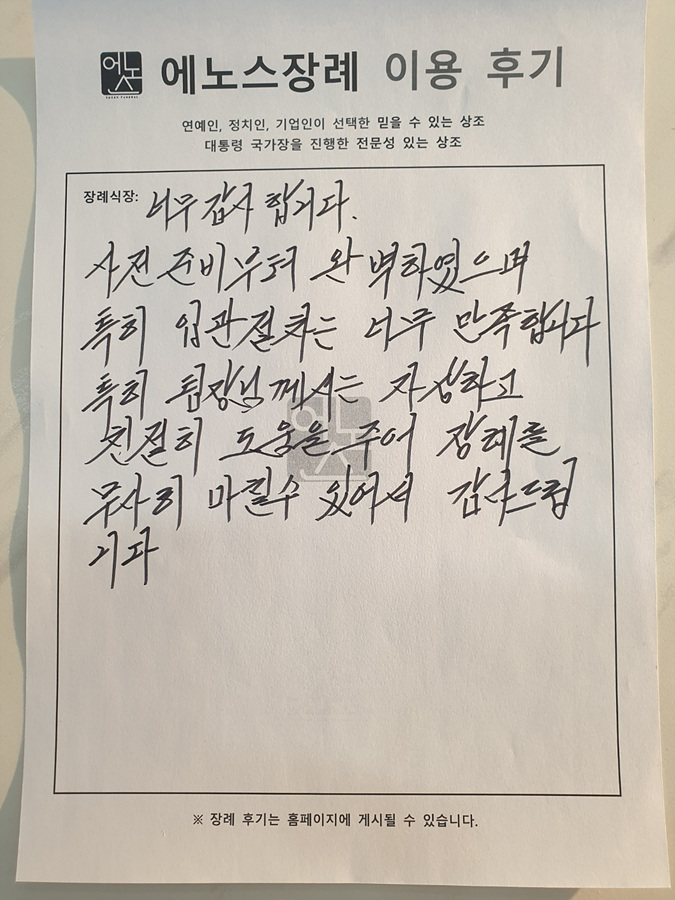 에노스
에노스장례 이용 후기
연예인, 정치인, 기업인이 선택한 믿을 수 있는 상조
대통령 국가장을 진행한 전문성 있는 상조
장례식장: 너무 감사 합니다.
사전 준비부터 완벽하였으며
특히 입관절차는 너무 만족합니다
특히 팀장님께서는 자상하고
친절히 도움을 주어 장례를
무사히 마칠수 있어서 감사드립
니다
※ 장례 후기는 홈페이지에 게시될 수 있습니다.